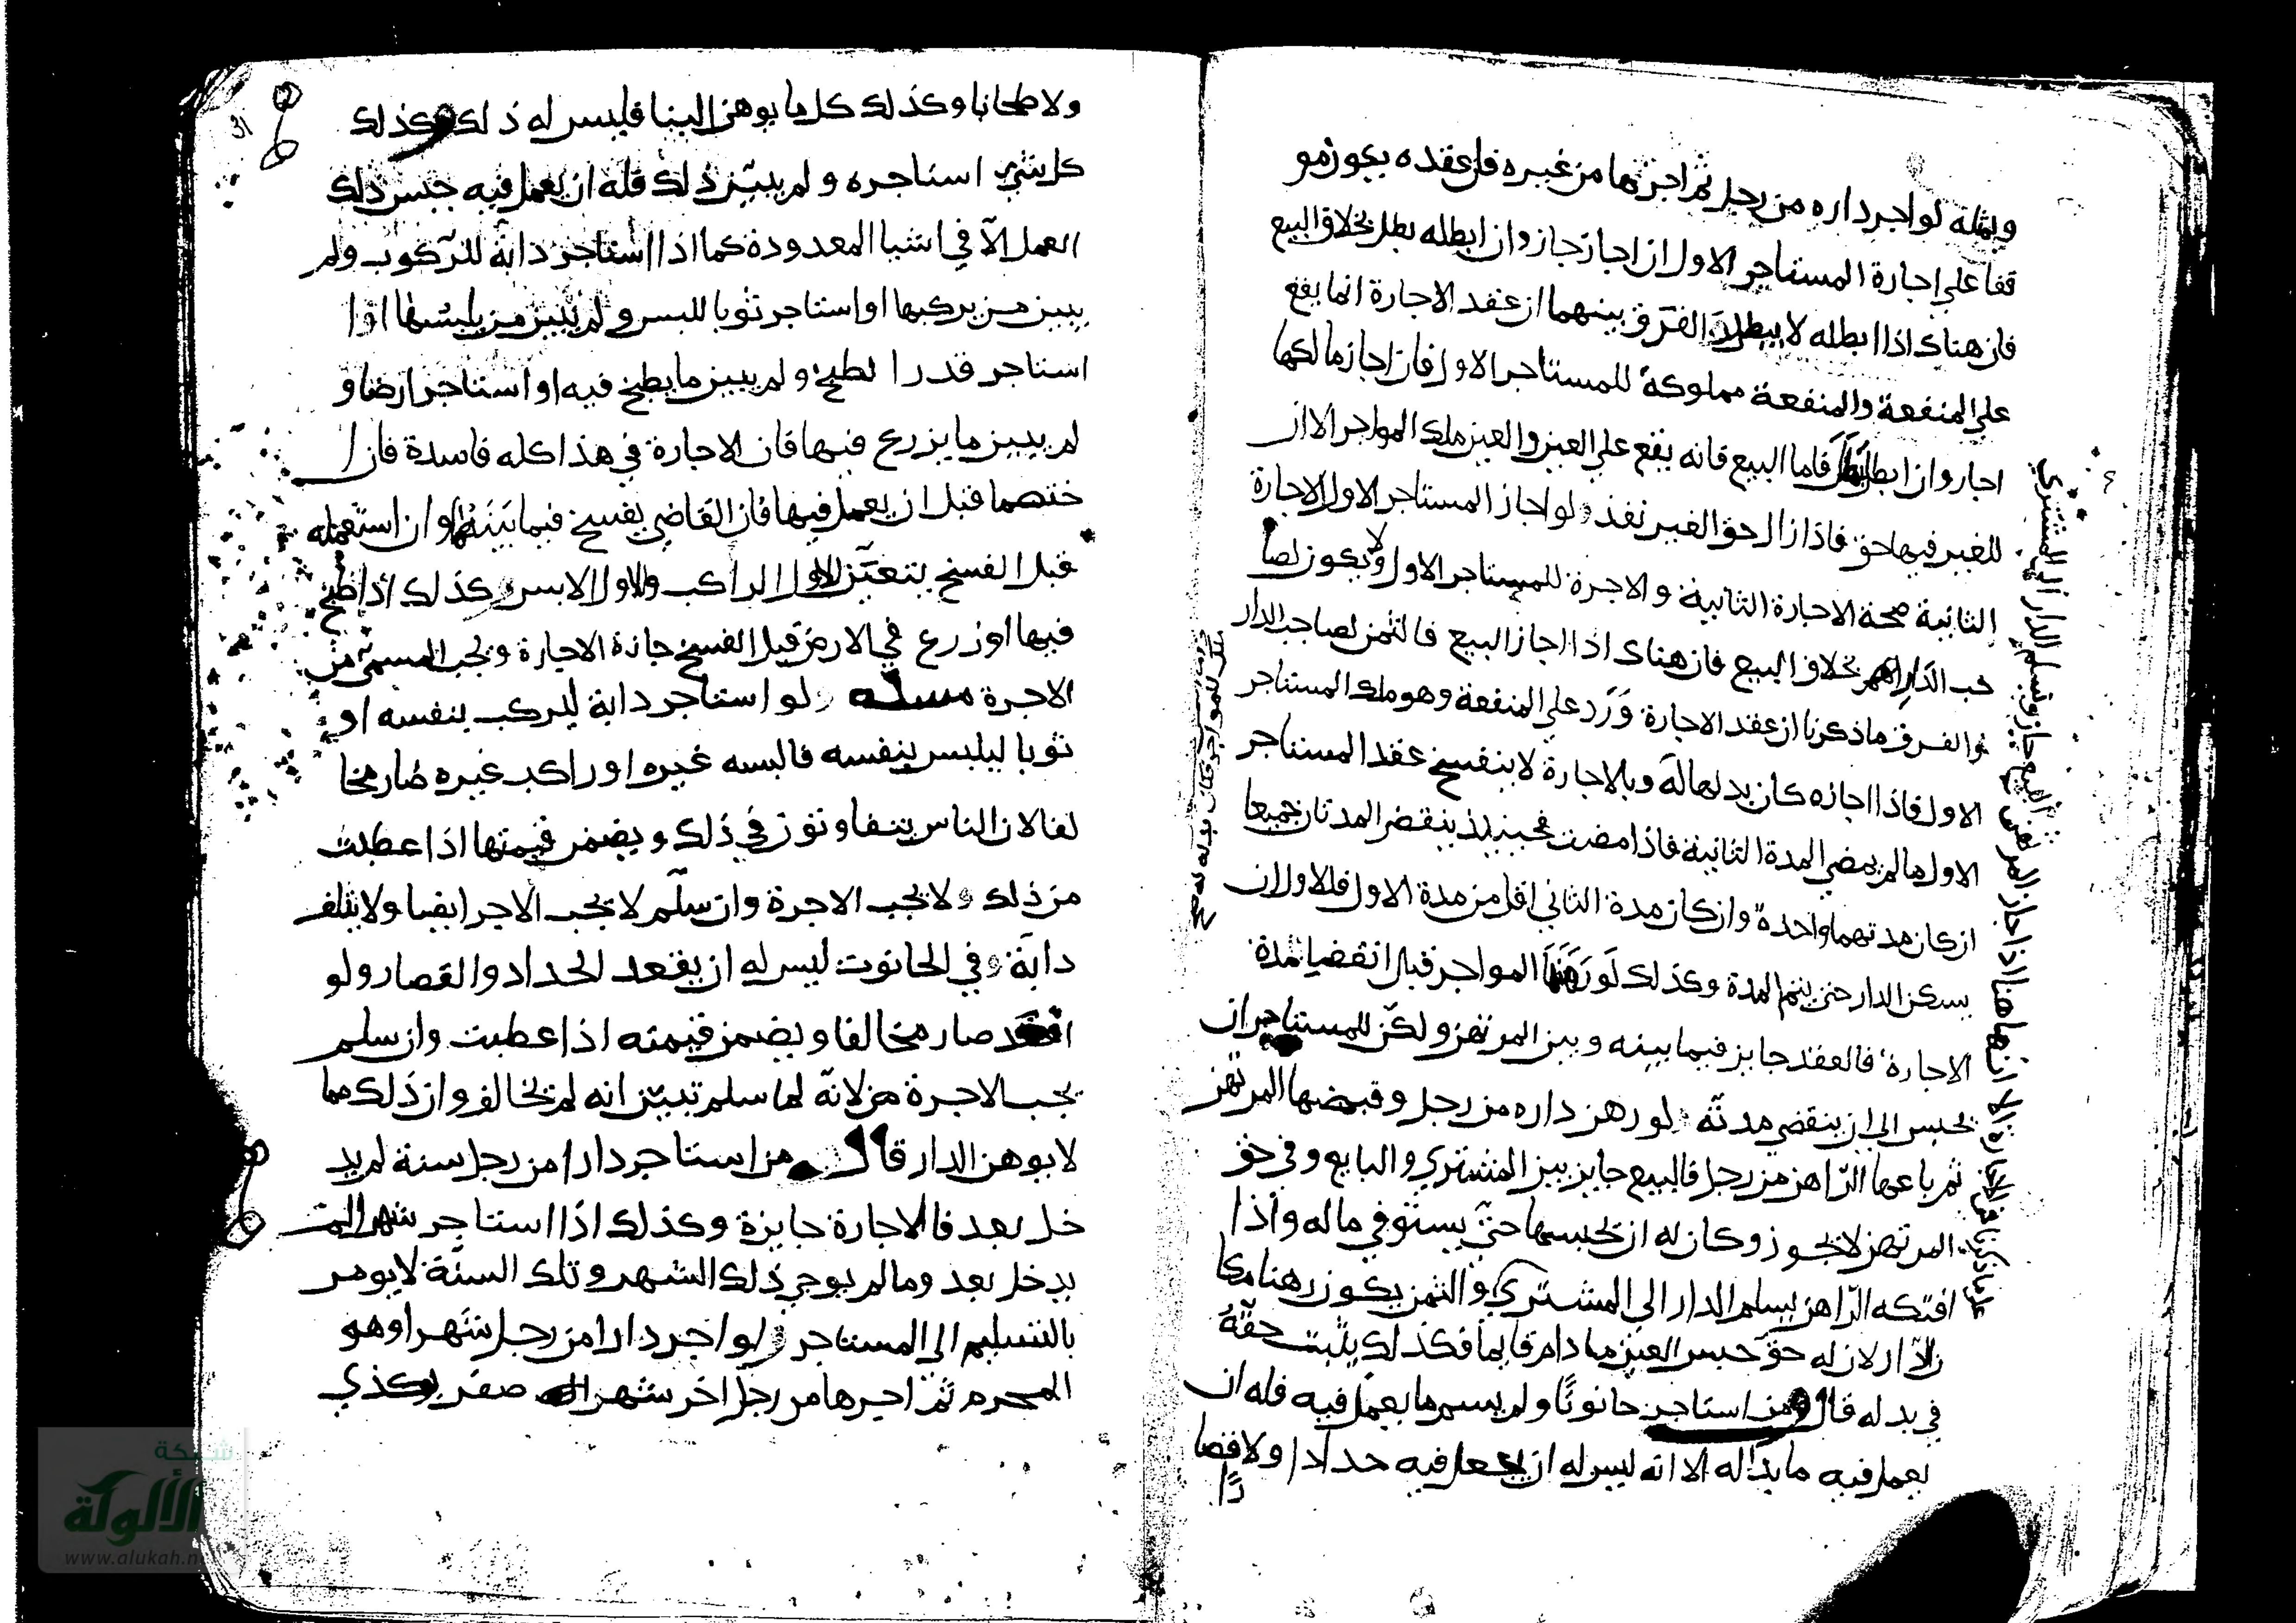 ومثله لو اجر داره من رجل ثم اجرها من غيره فان عقده يكون مو
قفا علي اجارة المستاجر الاول ان اجاز جاز وان ابطله بطل بخلاف البيع
فان هناك اذا ابطله لا يبطل الفرق بينهما ان عقد الاجارة انما يقع
علي المنفعة والمنفعة مملوكة للمستاجر الاول فان اجاز مالكها
اجاز وان ابطل بطل فاما البيع فانه يقع علي العين والعين ملك المواجر الا ان
للغير فيها حق فاذا زال حق الغير نفذ ولو اجاز المستاجر الاول الاجارة
الثانية صحة الاجارة الثانية والاجرة للمستاجر الاول ولا يكون لصا
حب الدار بخلاف البيع فان هناك اذا اجاز البيع فالثمن لصاحب الدار
والفرق ماذكرنا ان عقد الاجارة وَرَد علي المنفعة وهو ملك المستاجر
الاول فاذا اجازه كان بدلها له وبالاجارة لا ينفسخ عقد المستاجر
الاول مالم يمضي المدة الثانية فاذا مضت فحينيذ ينقض المدتان جميعا
ان كان مدتهما واحدة وان كان مدة الثاني اقل من مدة الاول فللاول ان
يسكن الدار حتي يتم المدة وكذلك لو رهنها المواجر قبل انقضا مدة
الاجارة فالعقد جايز فيما بينه وبين المرتهن ولكن للمستاجر ان
يحبس الي ان ينقضي مدته ولو رهن داره من رجل وقبضها المرتهن
ثم باعها الرّاهن من رجل فالبيع جايز بين المشتري والبايع وفي حق
المرتهن لا يجوز وكان له ان يحبسها حتّي يستوفي ماله واذا
افتكه الرّاهن يسلم الدار الي المشتري والثمن يكون رهنا مكا
ن الدّار لان له حق حبس العين ما دام قايما فكذلك يثبت حقّهُ
في بدله قال ومن استاجر حانوتًا ولم يسم ما يعمل فيه فله ان
يعمل فيه ما بدا له الا انه ليس له ان يجعل فيه حدادا ولا قصا
رًا
ولا طحانا وكذلك كل ما يوهن البنا فليس له ذلك وكذلك
كل شي استاجره ولم يبيّن ذلك فله ان يعمل فيه جنس ذلك
العمل الّا في اشيا المعدودة كما اذا استاجر دابّة للرّكوب ولم
يبين من يركبها او استاجر ثوبا للبس ولم يبين من يلبسها اذا
استاجر قدرا لطبخ ولم يبين ما يطبخ فيه او استاجر ارضا و
لم يبين ما يزرع فيها فان الاجارة في هذا كله فاسدة فان ا
ختصما قبل ان يعمل فيها فان القاضي يفسخ فيما بينهما وان استعمله
قبل الفسخ يتعيّن الاول الراكب والاول الابس وكذلك اذا طبخ
فيها او زرع في الارض قبل الفسخ جازة الاجارة ويجب المسمي من
الاجرة مسئلة ولو استاجر دابة ليركب بنفسه او
ثوبا ليلبس بنفسه فالبسه غيره او راكب غيره صار مخا
لفا لان الناس يتفاوتون في ذلك ويضمن قيمتها اذا عطبت
من ذلك ولا يجب الاجرة وان سلّم لا يجب الاجر ايضا ولا يتلف
دابة وفي الحانوت ليس له ان يقعد الحداد والقصار ولو
اقعد صار مخالفا ويضمن قيمته اذا عطبت وان سلم
يجب الاجرة لانّه لما سلم تبيّن انه لم يخالف وان ذلك مما
لا يوهن الدار قال ومن استاجر دارا من رجل سنة لم يد
خل بعد فالاجارة جايزة وكذلك اذا استاجر شهرا لم
يدخل بعد وما لم يوجر ذلك الشهر وتلك السنّة لا يومر
بالتسليم الي المستاجر ولو اجر دارا من رجل شهرا وهو
المحرم ثمّ اجرها من رجل اخر شهر صفر